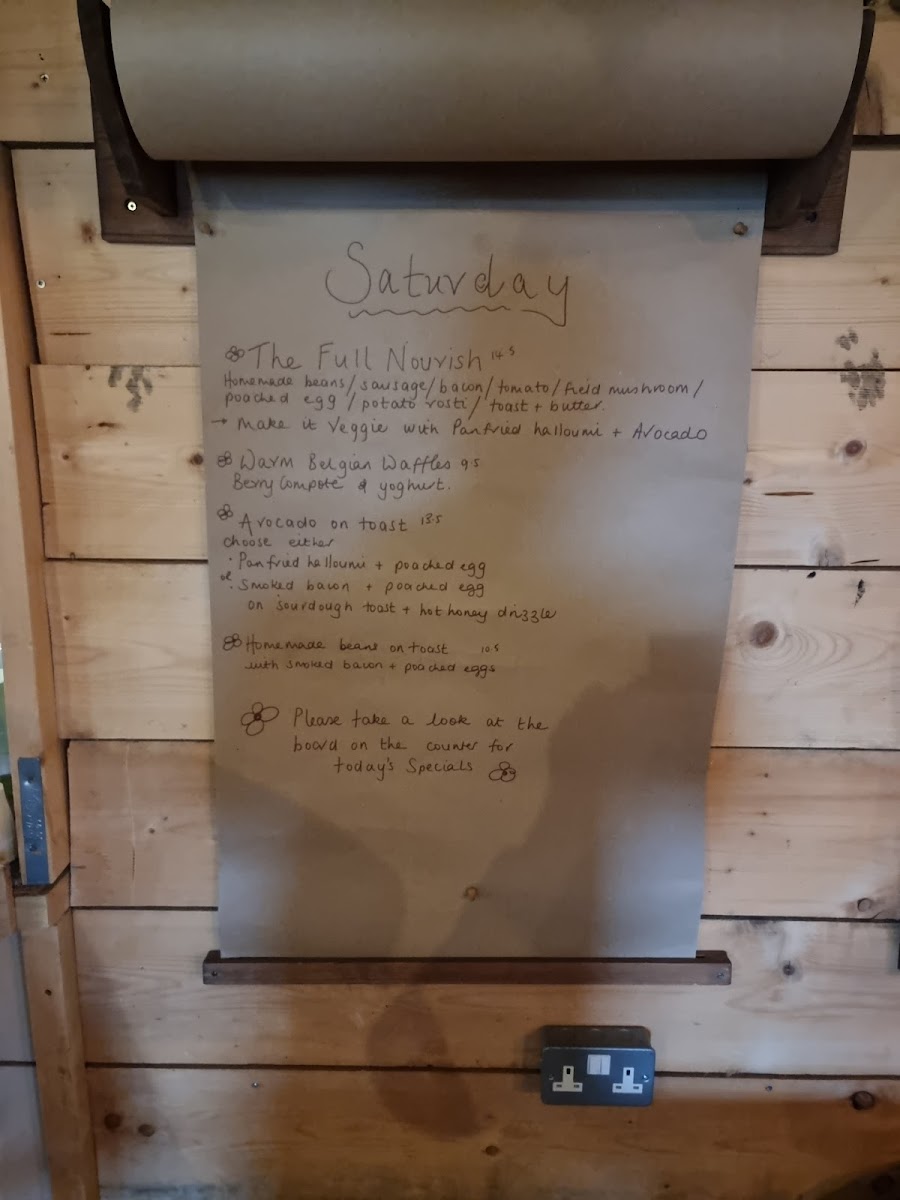 Saturday
The Full Nourish 14.5
Homemade beans/sausage/bacon/tomato/field mushroom/
poached egg/potato rosti/toast + butter.
→ Make it Veggie with Panfried halloumi + Avocado
Warm Belgian Waffles 9.5
Berry Compote & yoghurt.
Avocado on toast 13.5
choose either
· Panfried halloumi + poached egg
or
· Smoked bacon + poached egg
on sourdough toast + hot honey drizzle
Homemade beans on toast 10.5
with smoked bacon + poached eggs
Please take a look at the
board on the counter for
today's Specials